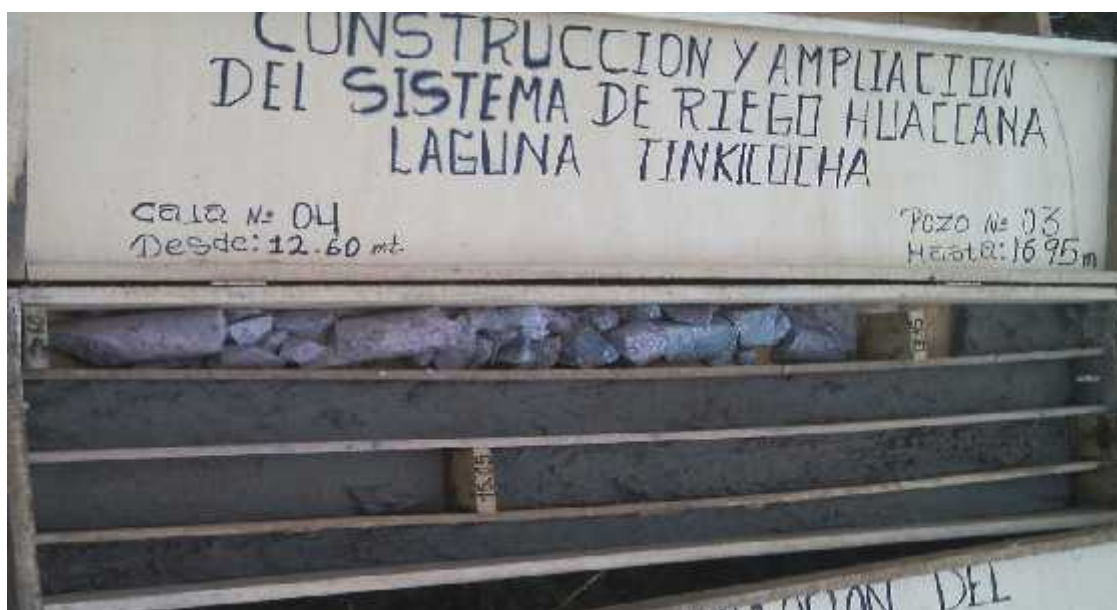 CONSTRUCCION Y AMPLIACION
DEL SISTEMA DE RIEGO HUACCANA
LAGUNA TINKICOCHA
Caja Nº 04
Pozo Nº 03
Desde: 12.60 mt.
Hasta: 16 95 m
15.15
DEL